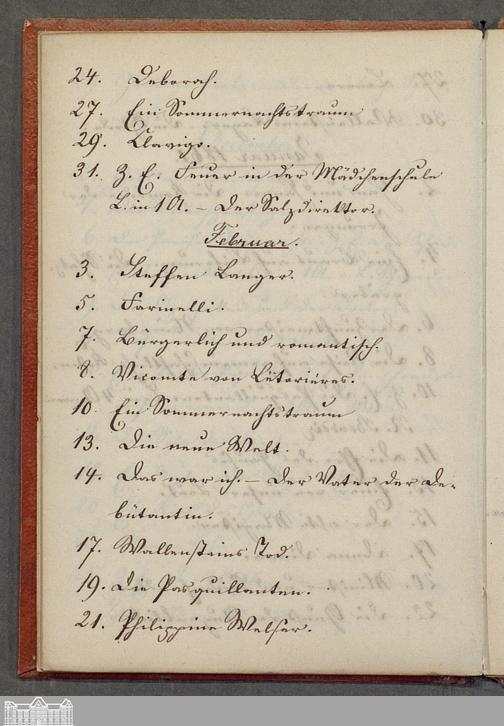 24. Deborah.
27. Ein Sommernachtstraum
29. Clavigo.
31. Z. E. Feuer in der Mädchenschule
L. in 1 A. – Der Salzdirektor.
Februar.
3. Steffen Langer.
5. Farinelli.
7. Bürgerlich und romantisch.
8. Vicomte von Létorières.
10. Ein Sommernachtstraum
13. Die neue Welt.
14. Das war ich. – Der Vater der De-
bütantin.
17. Wallensteins Tod.
19. Die Pasquillanten.
21. Philippine Welser.